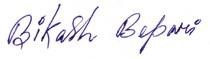 Bikash Bepari